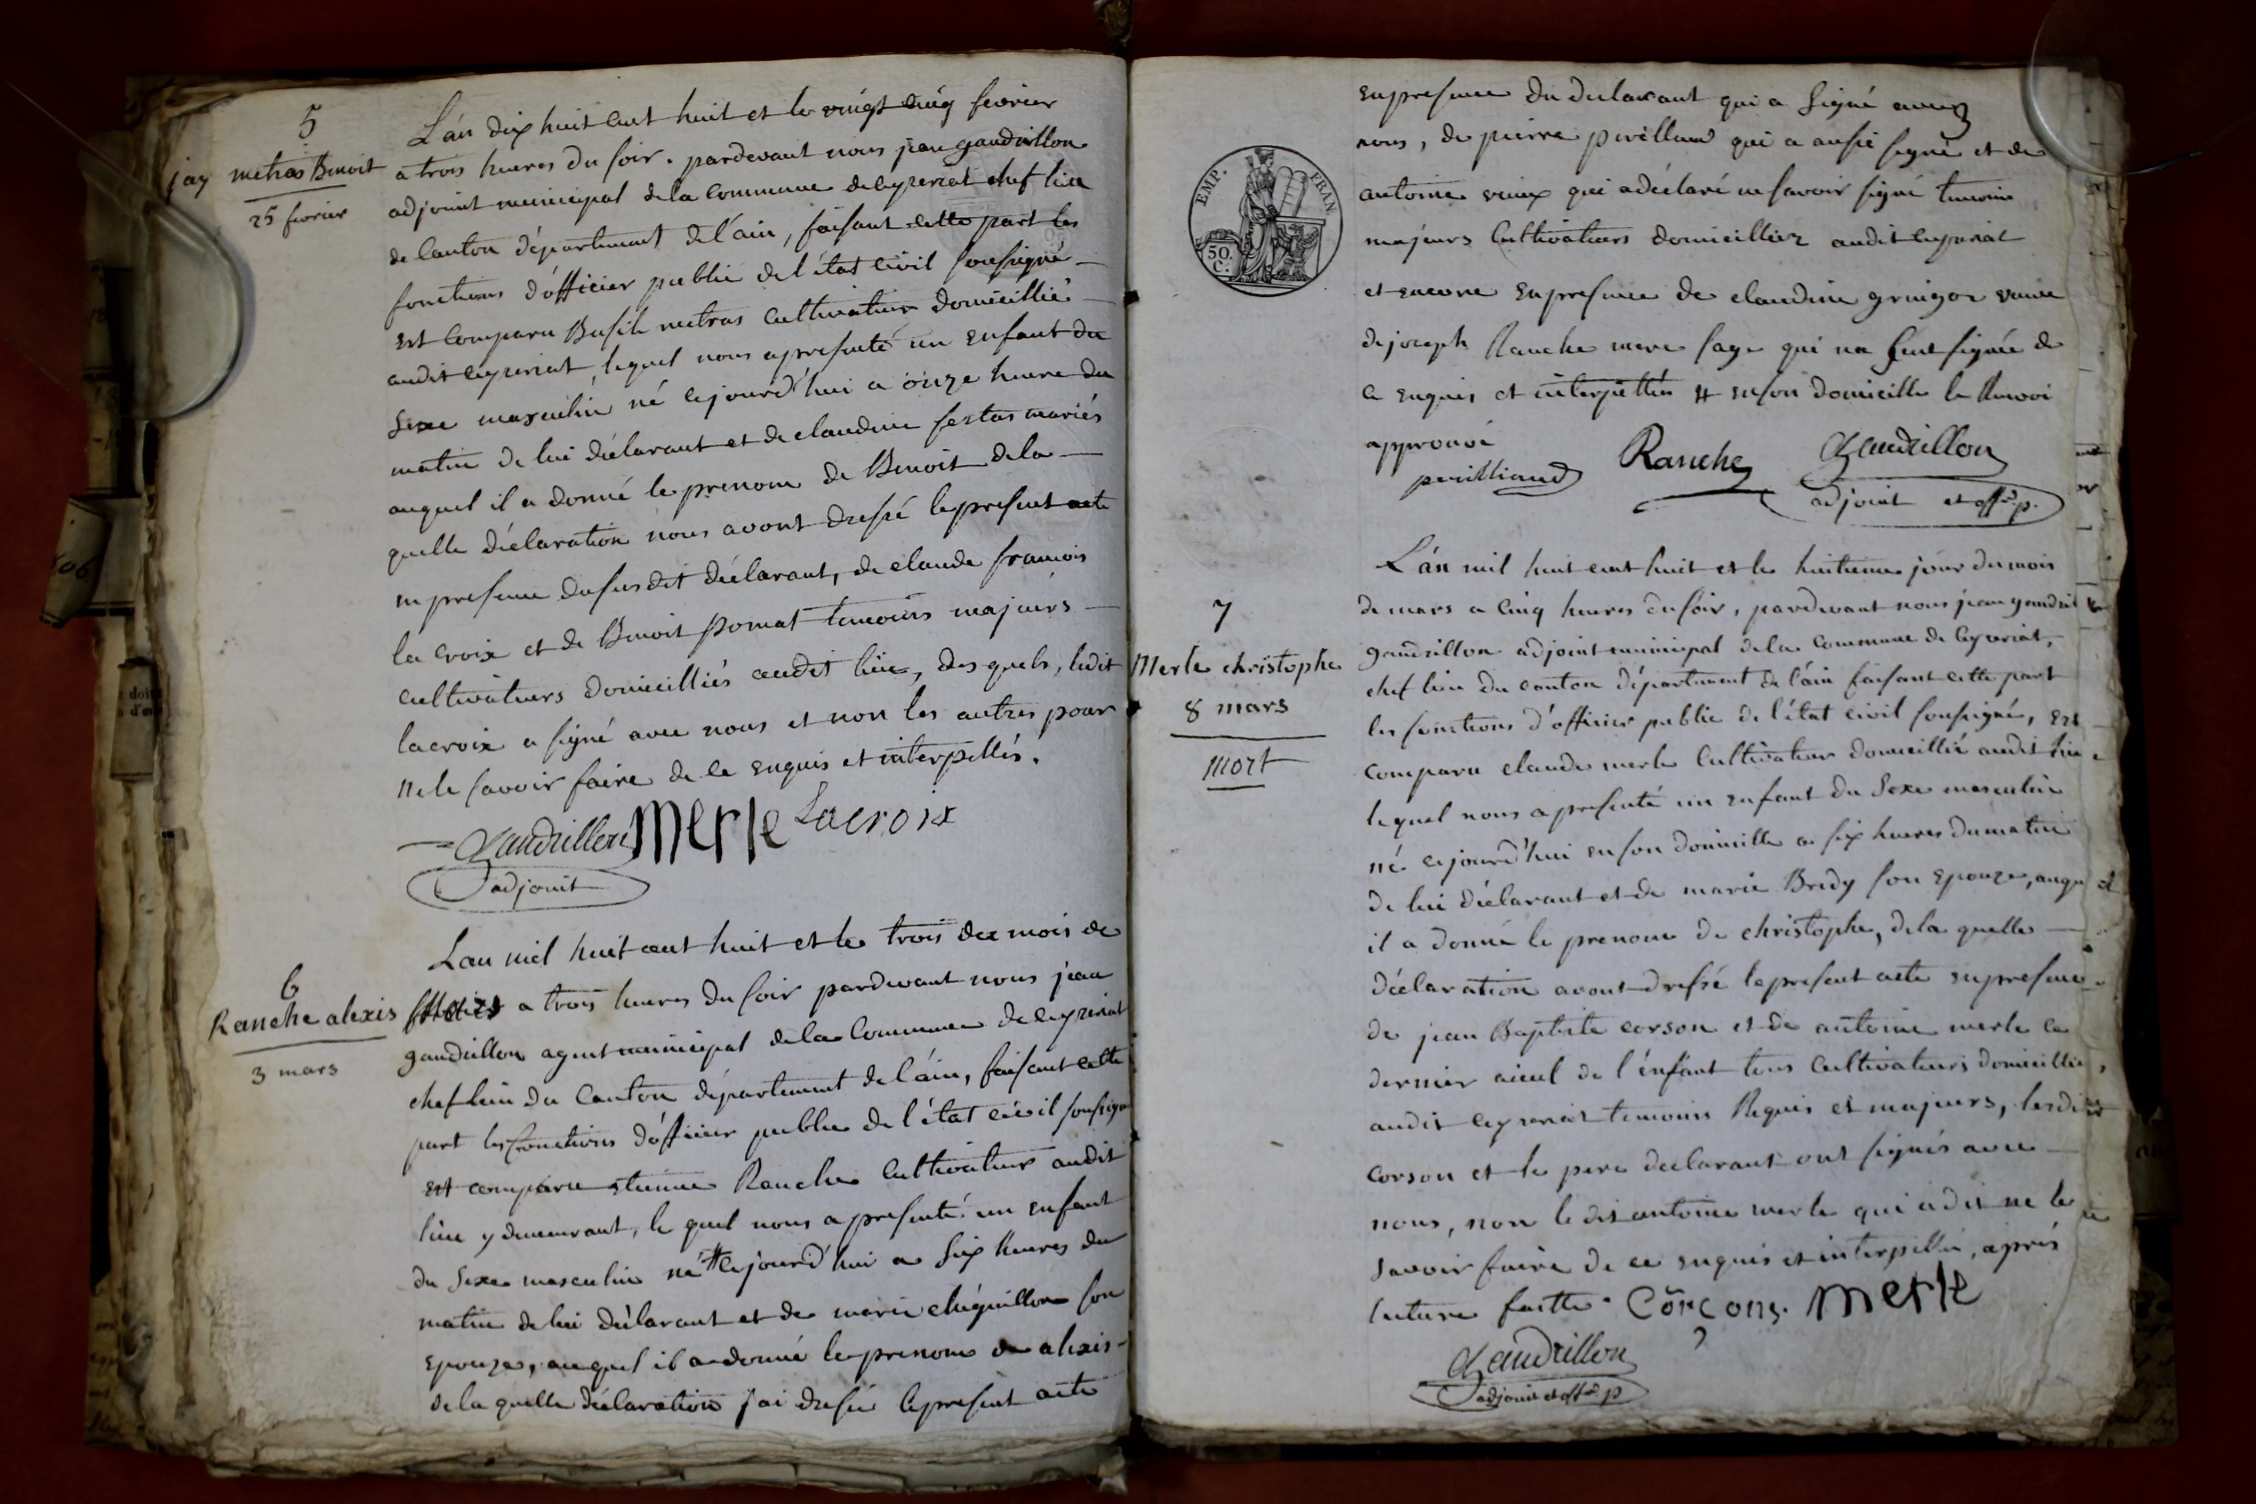 5
jay metras Benoit
25 fevrier
L'an dix huit cent huit et le vingt cinq fevrier
a trois heures du soir. pardevant nous jean gaudrillon
adjoint municipal de la commune de ceyzeriat chef lieu
de canton département de l'ain, faisant cette part les
fonctions d'officier public de l'état civil soussigné
est comparu Basile metras cultivateur domicillié
audit ceyzeriat, lequel nous a presenté un enfant du
sexe masculin né cejourd'hui a onze heure du
matin de lui déclarant et de claudine festas mariés
auquel il a donné le prenom de Benoit de la
quelle déclaration nous avont dressé le present acte
en presence du susdit déclarant, de claude francois
la croix et de Benoit pomat temoins majeurs
cultivateurs domicilliés audit lieu, des quels, ledit
lacroix a signé avec nous et non les autres pour
ne le savoir faire de ce enquis et interpellés.
Gaudrillon Merle Lacroix
adjoint
6
Ranche alexis
3 mars
L'an mil huit cent huit et le trois du mois de
mars a trois heures du soir pardevant nous jean
gaudrillon agent municipal de la Commune de ceyzeriat
chef lieu du Canton département de l'ain, faisant cette
part les fonctions d'officier public de l'état civil soussigné
est comparu etienne Ranche Cultivateur audit
lieu y demeurant, le quel nous a presenté un enfant
du sexe masculin né # cejourd'hui a six heures du
matin de lui déclarant et de marie chéguillon son
epouze, auquel il a donné le prenom de alexis
de la quelle déclaration j'ai dressé le present acte
en presence du declarant qui a signé avec
nous, de pierre perilland qui a aussi signé et de
antoine vieux qui a déclaré ne savoir signé temoins
majeurs Cultivateurs domicilliez audit ceyzeriat
et encore en presence de claudine gruigoz veuve
de joseph Ranche mere sage qui na seut signée de
ce enquis et interpellés # en son domicille le Renvoi
approuvé
perilliand Ranche Gaudrillon
adjoint et off.er p.
EMP. FRAN
50. C.
7
Merle christophe
8 mars
mort
L'an mil huit cent huit et le huitieme jour du mois
de mars a cinq heures du soir, pardevant nous jean gaudril
gaudrillon adjoint municipal de la commune de ceyzeriat,
chef lieu du canton département de l'ain faisant cette part
les fonctions d'officier public de l'état civil soussigné, est
comparu claude merle Cultivateur domicillié audit lieu
lequel nous a presenté un enfant du sexe masculin
né cejourd'hui en son domicille a six heures du matin
de lui déclarant et de marie Bridy son epouze, auquel
il a donné le prenom de christophe, de la quelle
déclaration avont dressé le present acte en presence
de jean Baptiste corson et de antoine merle ce
dernier aieul de l'enfant tous Cultivateurs domicilliés
audit ceyzeriat temoins Requis et majeurs, lesdits
corson et le pere declarant ont signés avec
nous, non le dit antoine merle qui a dit ne le
savoir faire de ce enquis et interpellé, après
lecture faitte. Corcons. Merle
Gaudrillon
adjoint et off.er p